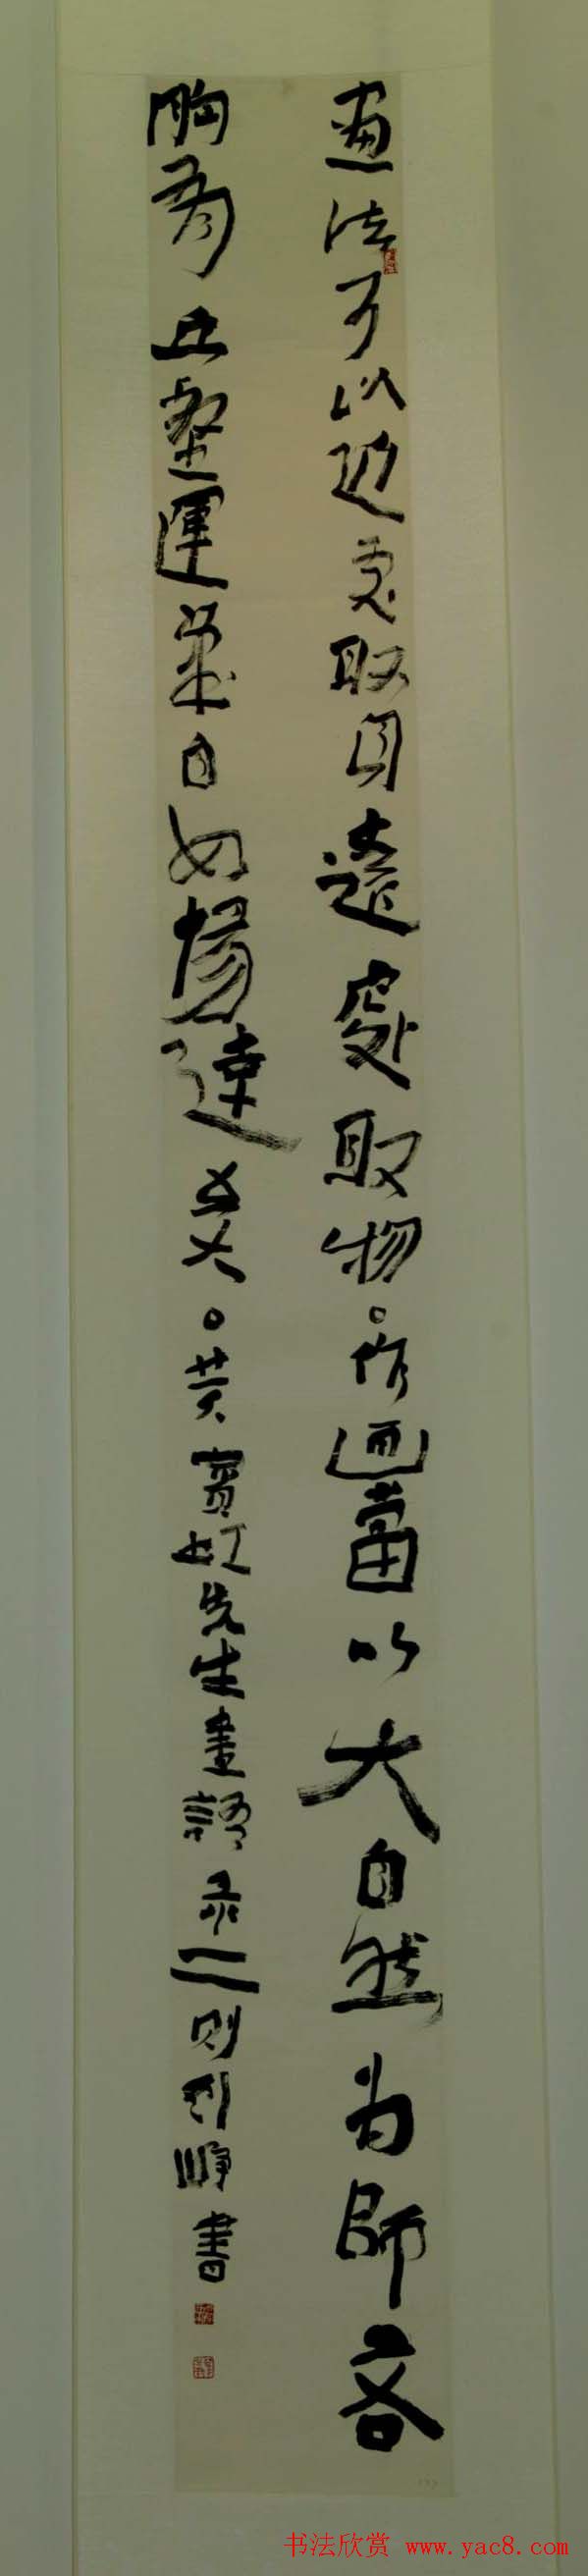 畫法可以近處取月遠處取物。作画當以大自然为師若
胸有丘壑運筆自如暢達矣。黄賓虹先生畫語录二则刘峥書
书法欣赏 www.yac8.com